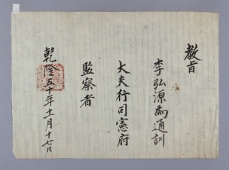 教旨
李弘源爲通訓
大夫行司憲府
監察者
乾隆五十年十一月十七日